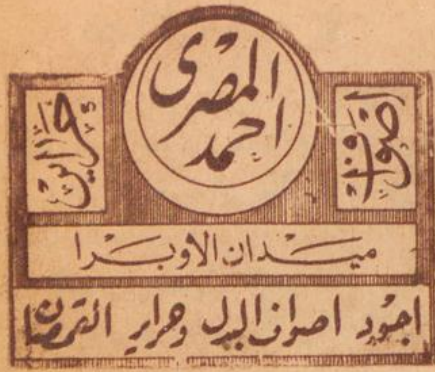 المصرى
احمد
اصواف
حراير
ميدان الاوبرا
اجود اصواف البدل وحراير القمصان